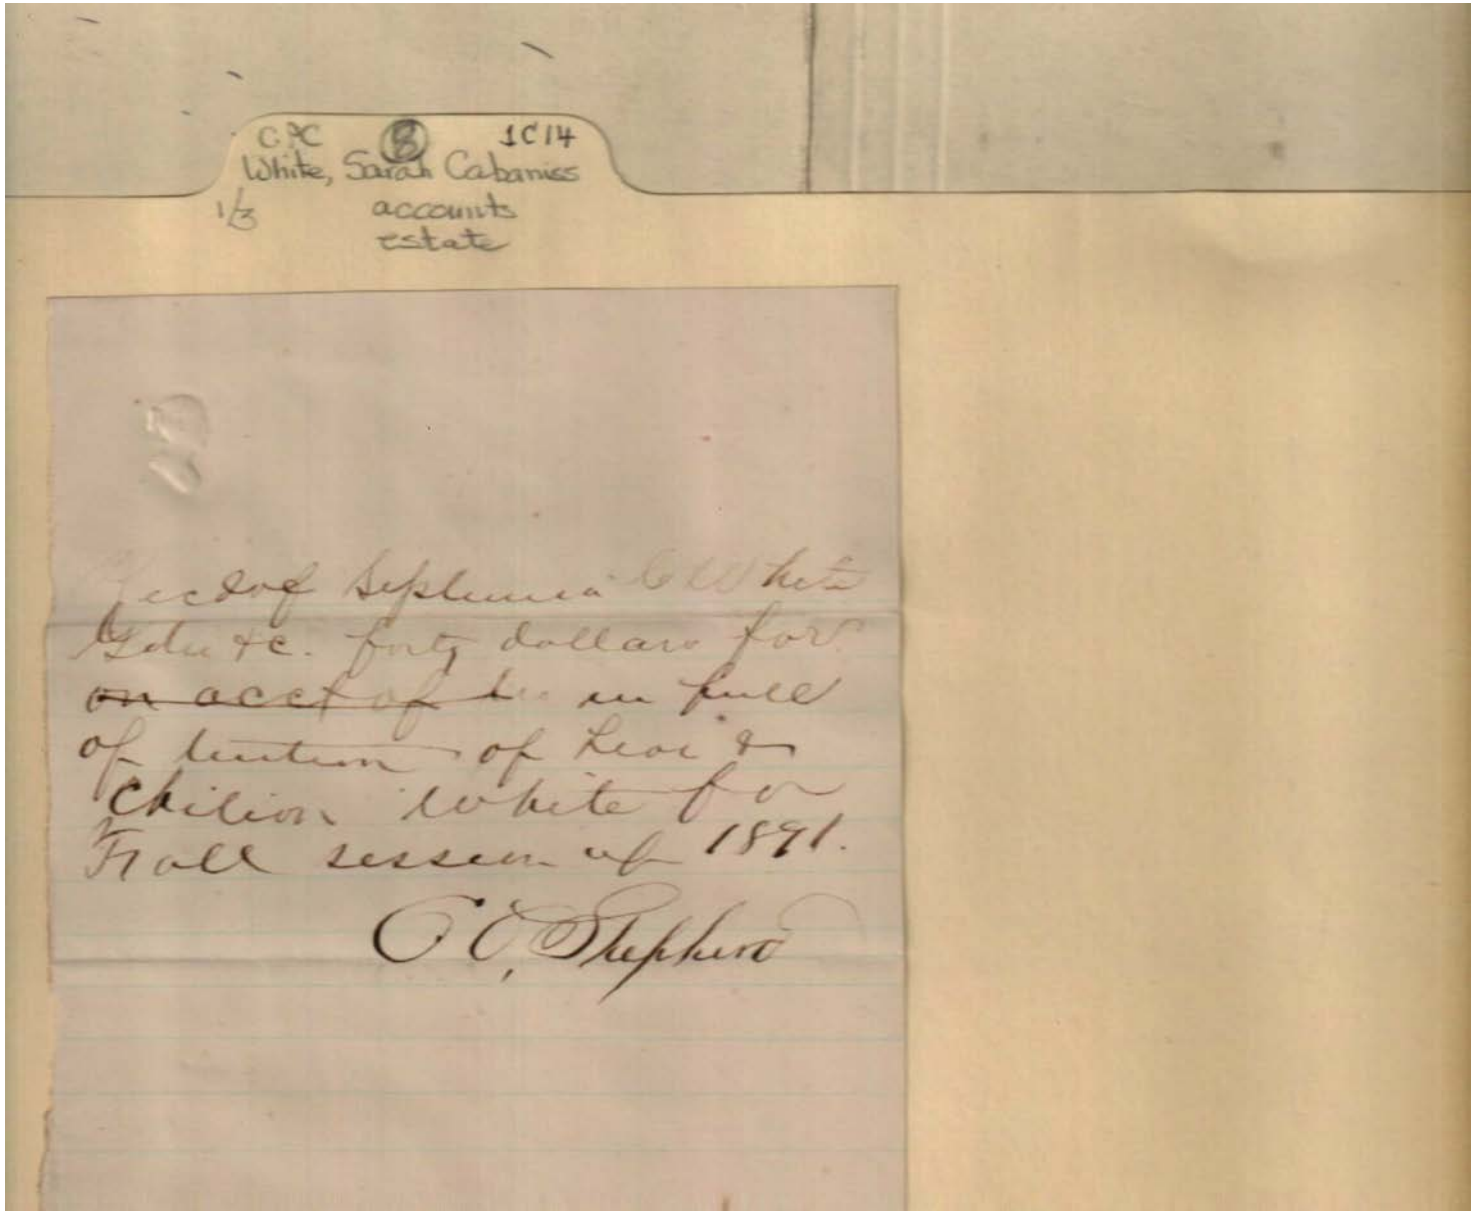 CPC 8 1C14
White, Sarah Cabaniss
1/3 accounts
estate
Recd of Septimia C White
Gdn &c. forty dollars for
on acct of in full
of tuition of Levi &
Chilion White for
Fall session of 1891.
C O, Shepherd